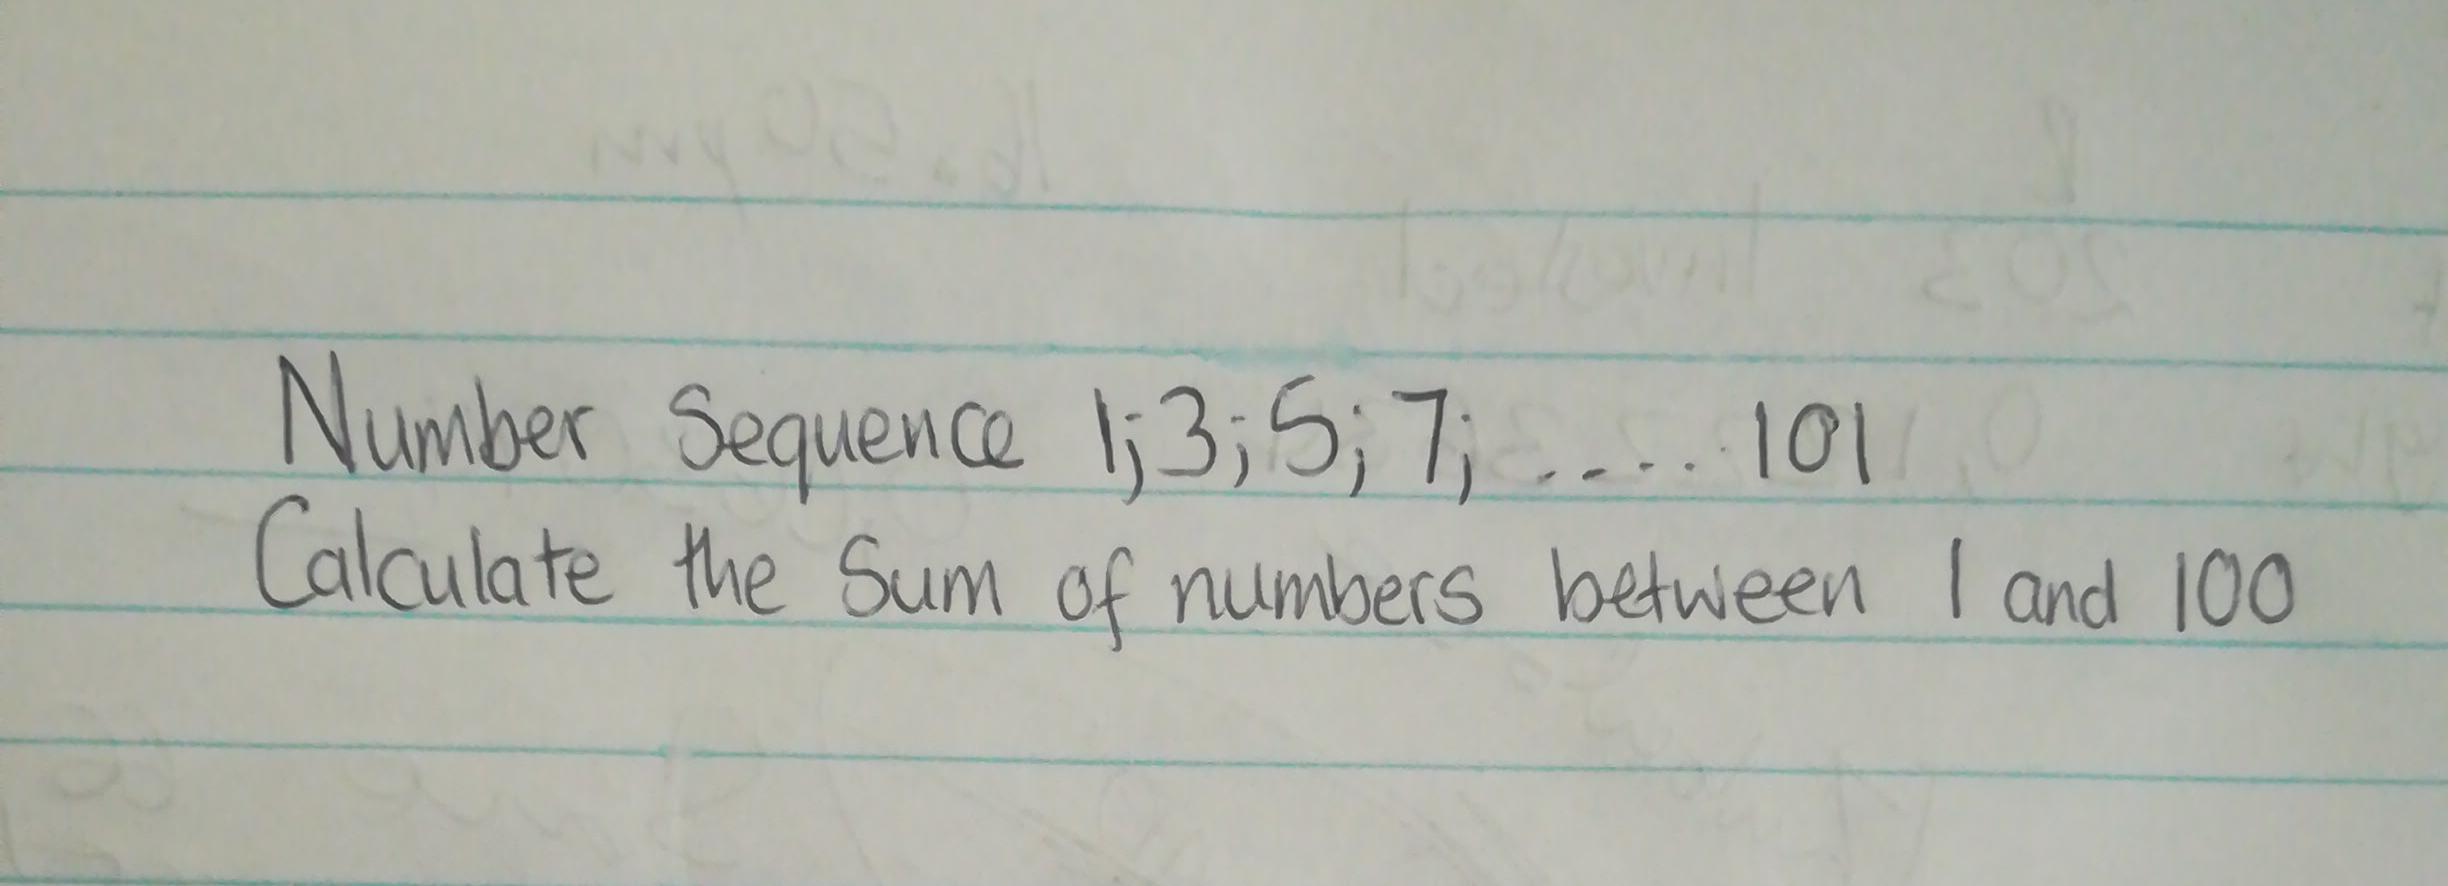 Number Sequence 1;3;5;7;.....101
Calculate the Sum of numbers between 1 and 100